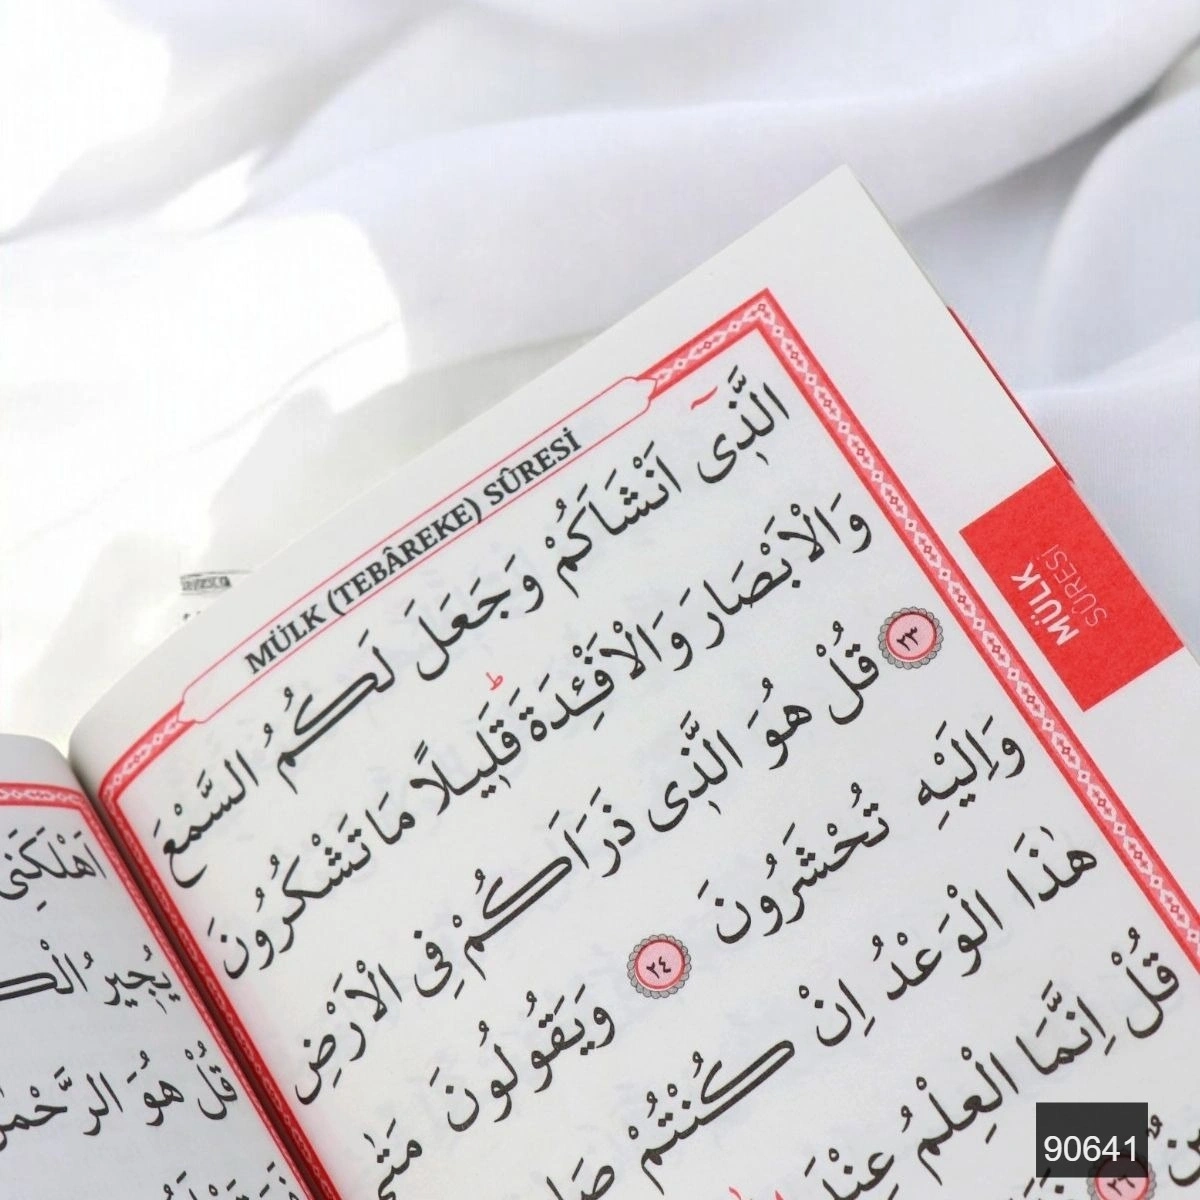 MÜLK (TEBÂREKE) SÛRESİ
الَّذٖٓى اَنْشَاَكُمْ وَجَعَلَ لَكُمُ السَّمْعَ
وَالْاَبْصَارَ وَالْاَفْـِٔدَةَ قَلٖيلًا مَا تَشْكُرُونَ
٢٣ قُلْ هُوَ الَّذٖى ذَرَاَكُمْ فِى الْاَرْضِ
وَاِلَيْهِ تُحْشَرُونَ ٢٤ وَيَقُولُونَ مَتٰى
هٰذَا الْوَعْدُ اِنْ كُنْتُمْ
قُلْ اِنَّمَا الْعِلْمُ
٢٦
MÜLK
SÛRESİ
اَهْلَكَنِىَ
يُجٖيرُ
قُلْ هُوَ الرَّحْمٰنُ
90641